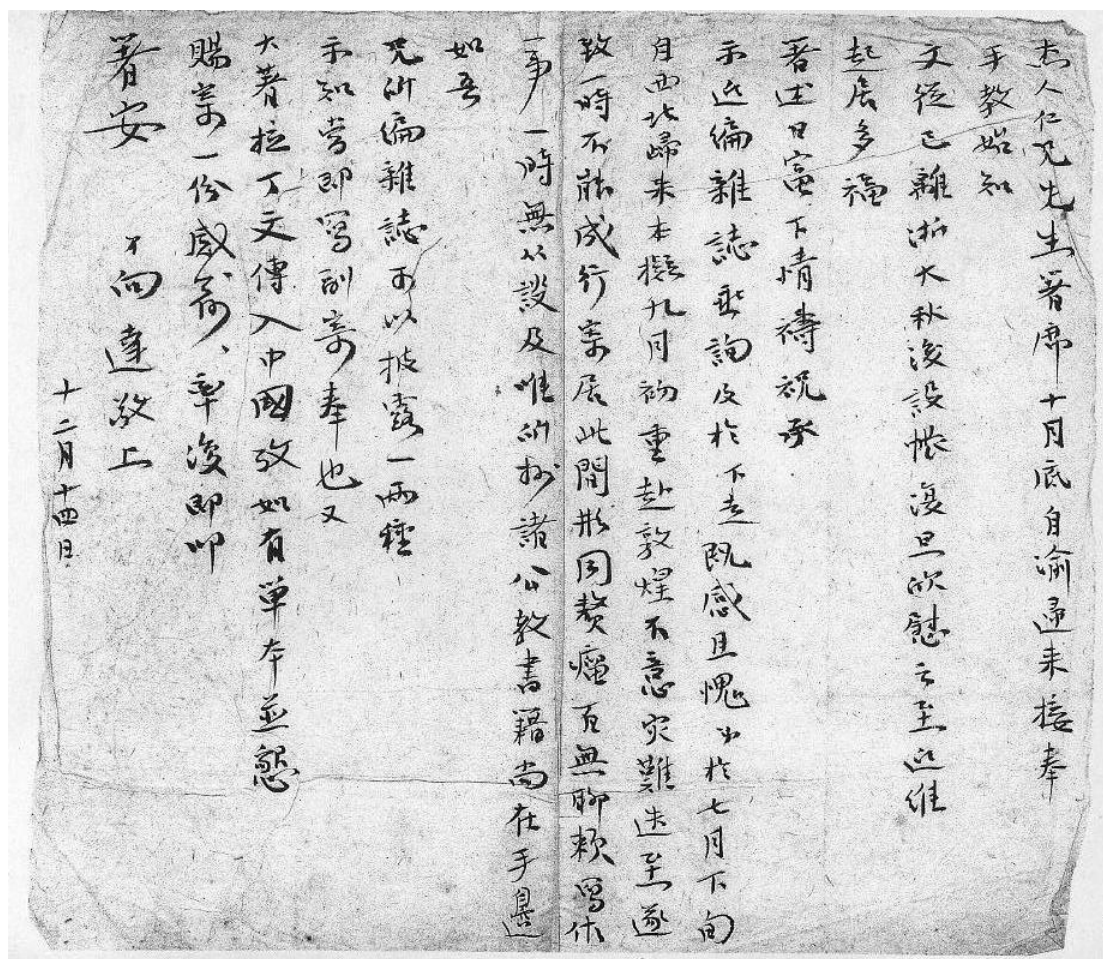 杰人仁兄先生著席十月底自渝歸来接奉
手教始知
文從已離浙大秋後設帳復旦欣慰之至近維
起居多福
著述日富下情禱祝承
示近编雜誌垂詢及於下走既感且愧弟於七月下旬
自西北歸来本擬九月初重赴敦煌不意灾難迭至遂
致一時不能成行索居此間形同贅瘤百無聊賴寫作
一事一時無从談及唯所抄諸公教書籍尚在手邊
如吾
兄所编雜誌可以披露一兩種
示知當即寫副寄奉也又
大著拉丁文傳入中國攷如有单本並懇
賜寄一份感荷、專復即叩
著安 弟向達敬上
十二月十四日